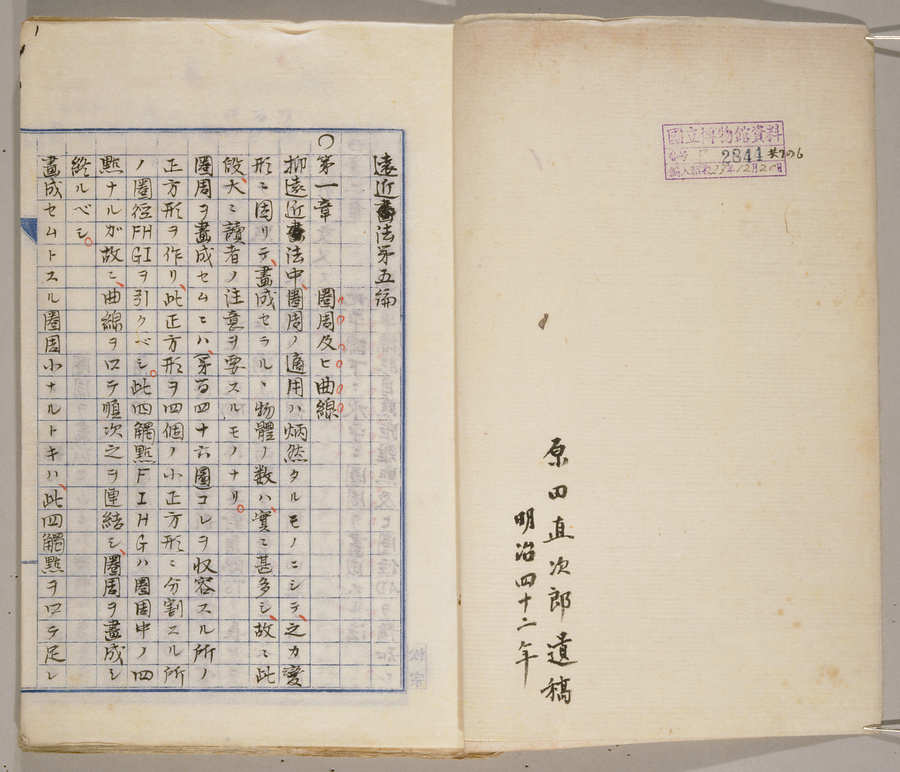 國立博物館資料
2841
原田直次郎遺稿
明治四十二年
遠近畫法第五編
○第一章　圏周及ヒ曲線
抑遠近畫法中、圏周ノ適用ハ炳然タルモノニシテ、之カ変
形ニ因リテ、畫成セラルヽ物體ノ数ハ、實ニ甚多シ、故ニ此
段、大ニ讀者ノ注意ヲ要スルモノナリ。
圏周ヲ畫成セムニハ、第百四十六圖コレヲ収容スル所ノ
正方形ヲ作リ、此正方形ヲ四個ノ小正方形ニ分割スル所
ノ圏径FHGIヲ引クベシ。此四觸點FIHGハ圏周中ノ四
點ナルガ故ニ、曲線ヲ以テ順次之ヲ連結シ、圏周ヲ畫成シ
終ルベシ。
畫成セムトスル圏周小ナルトキハ、此四觸點ヲ以テ足レ